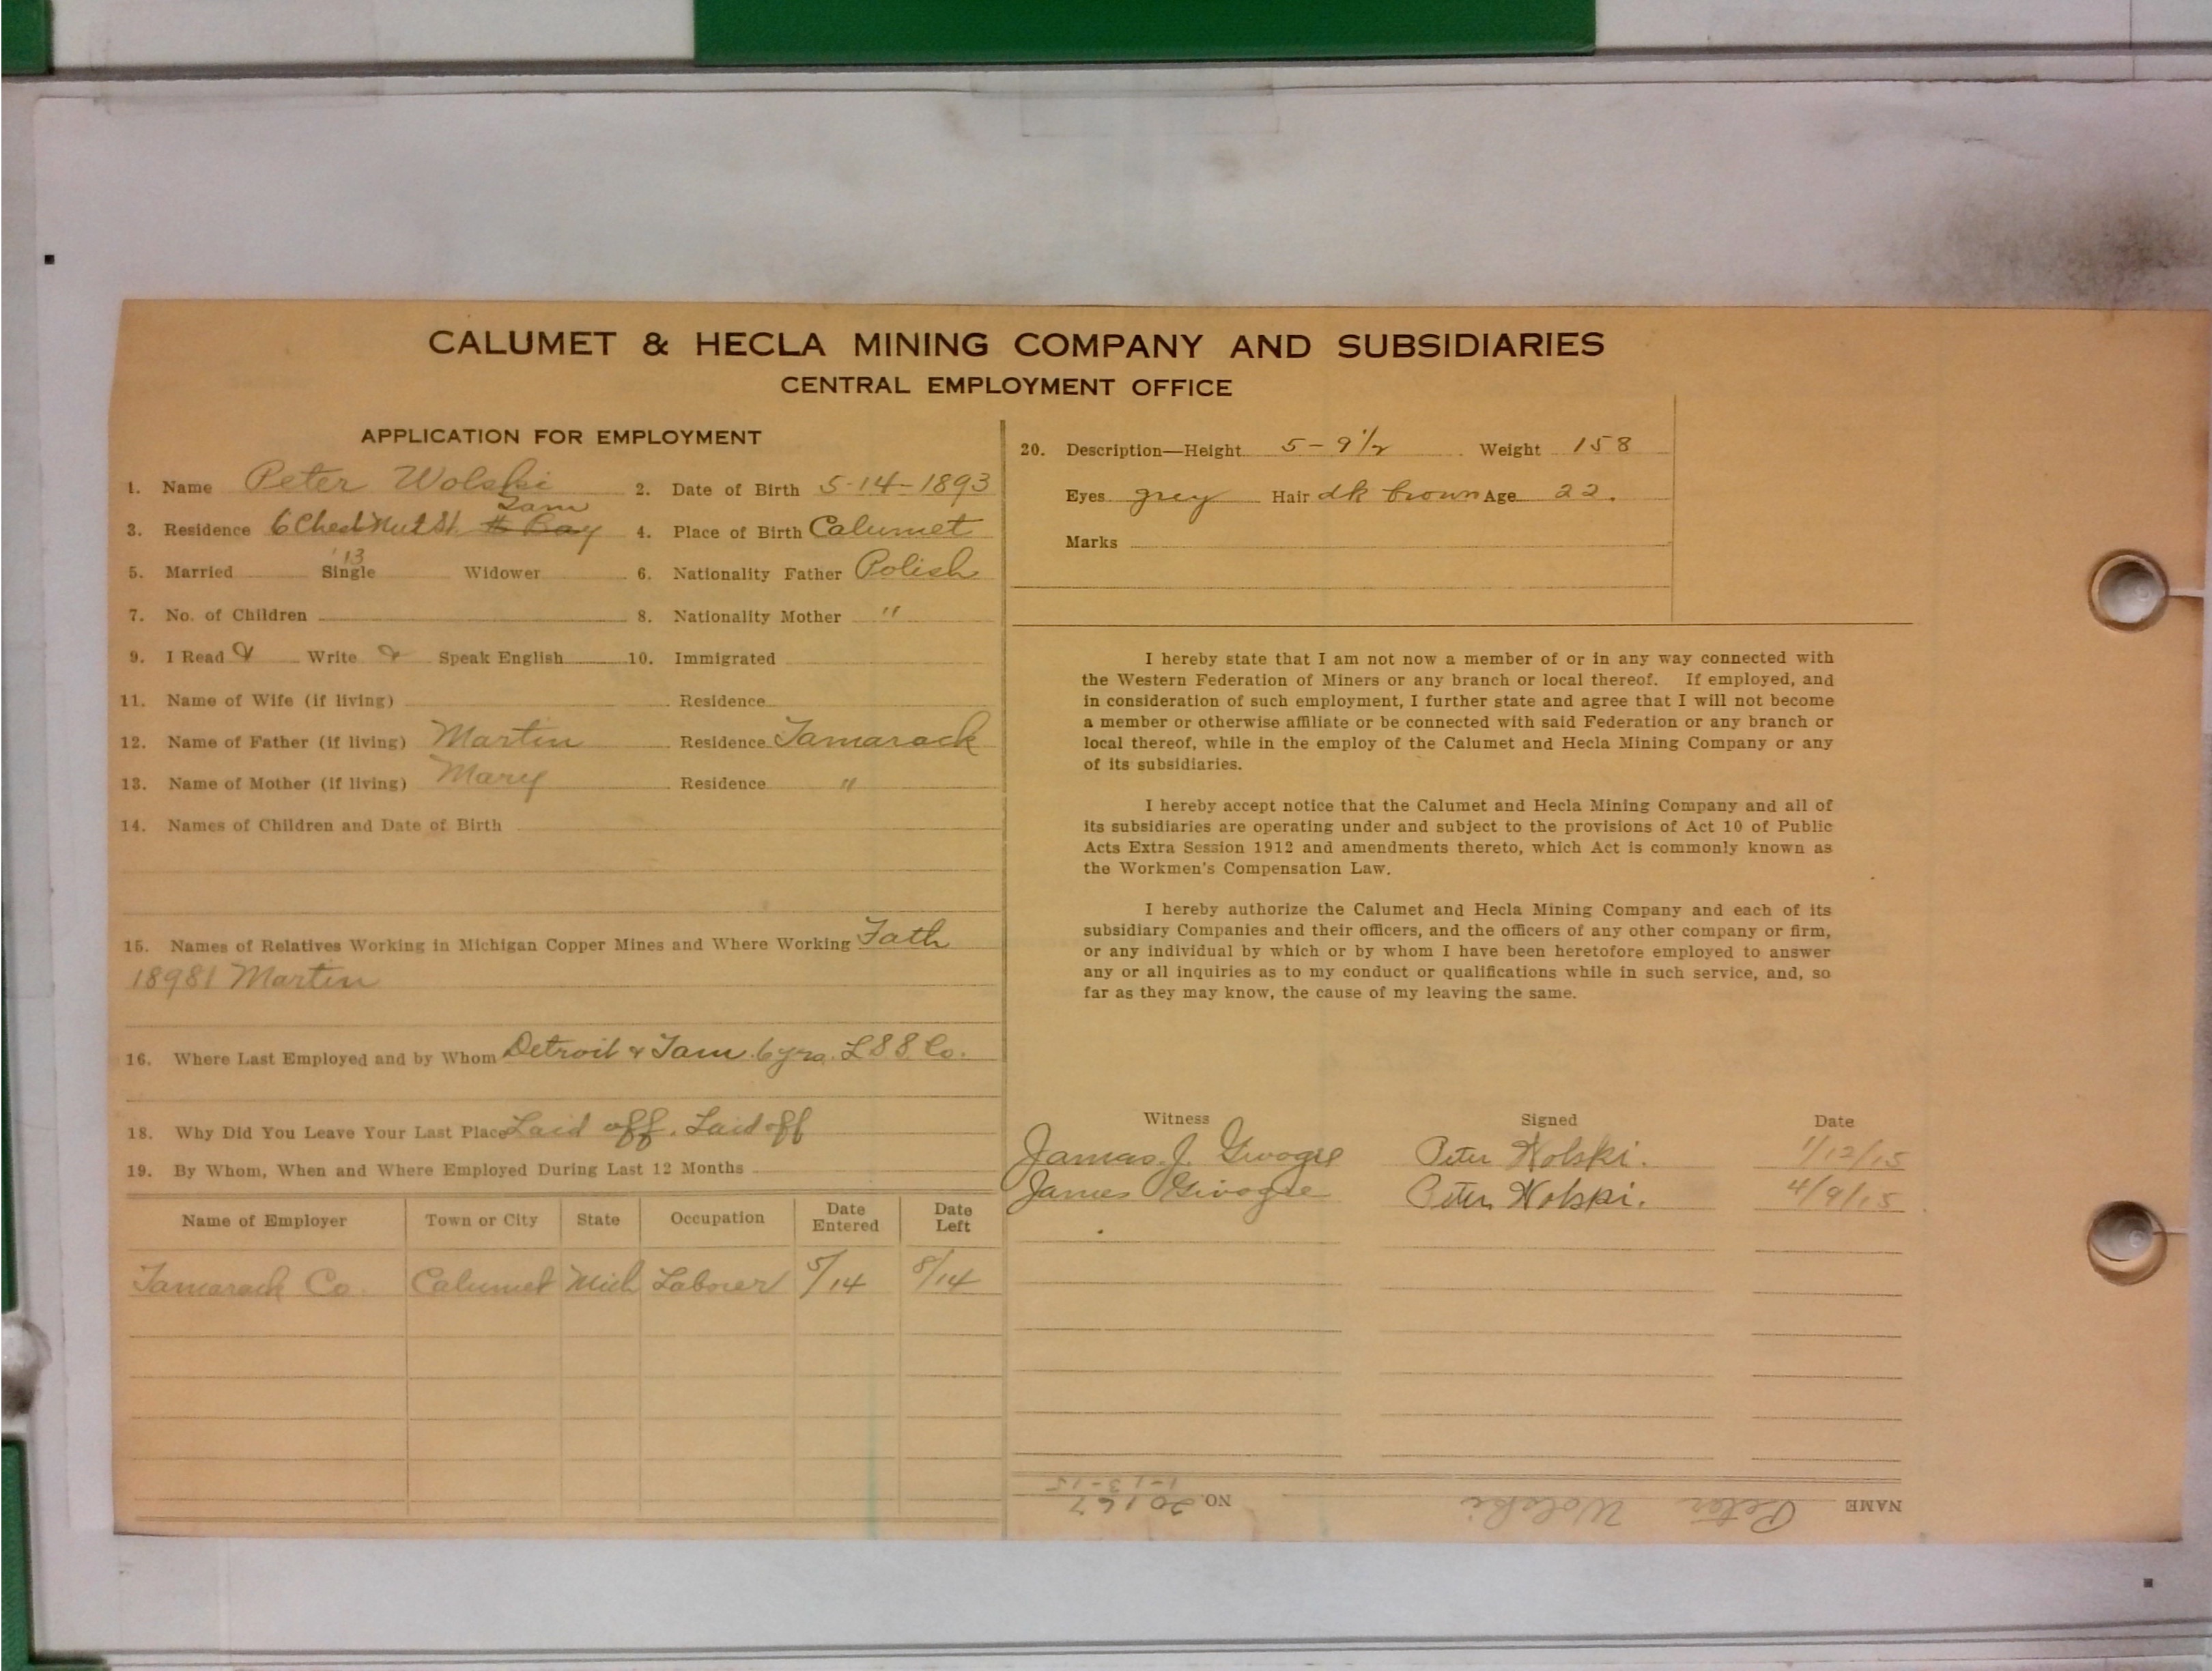 CALUMET & HECLA MINING COMPANY AND SUBSIDIARIES
CENTRAL EMPLOYMENT OFFICE
APPLICATION FOR EMPLOYMENT
1. Name Peter Wolski 2. Date of Birth 5-14-1893
Tam
3. Residence 6 Chestnut St. # Bay 4. Place of Birth Calumet
'13
5. Married Single Widower 6. Nationality Father Polish
7. No. of Children 8. Nationality Mother "
9. I Read & Write & Speak English 10. Immigrated
11. Name of Wife (if living) Residence
12. Name of Father (if living) Martin Residence Tamarack
13. Name of Mother (if living) Mary Residence "
14. Names of Children and Date of Birth
15. Names of Relatives Working in Michigan Copper Mines and Where Working Fath
18981 Martin
16. Where Last Employed and by Whom Detroit & Tam. 6 yrs. L S S. Co.
18. Why Did You Leave Your Last Place Laid off. Laid off
19. By Whom, When and Where Employed During Last 12 Months
Name of Employer Town or City State Occupation Date Entered Date Left
Tamarack Co. Calumet Mich Laborer 5/14 8/14
20. Description—Height 5-9 1/2 Weight 158
Eyes grey Hair dk brown Age 22.
Marks
I hereby state that I am not now a member of or in any way connected with
the Western Federation of Miners or any branch or local thereof. If employed, and
in consideration of such employment, I further state and agree that I will not become
a member or otherwise affiliate or be connected with said Federation or any branch or
local thereof, while in the employ of the Calumet and Hecla Mining Company or any
of its subsidiaries.
I hereby accept notice that the Calumet and Hecla Mining Company and all of
its subsidiaries are operating under and subject to the provisions of Act 10 of Public
Acts Extra Session 1912 and amendments thereto, which Act is commonly known as
the Workmen's Compensation Law.
I hereby authorize the Calumet and Hecla Mining Company and each of its
subsidiary Companies and their officers, and the officers of any other company or firm,
or any individual by which or by whom I have been heretofore employed to answer
any or all inquiries as to my conduct or qualifications while in such service, and, so
far as they may know, the cause of my leaving the same.
Witness Signed Date
James J. Peter Wolski. 1/12/15
James Peter Wolski. 4/9/15
NAME Peter Wolski NO. 20167
1-13-15